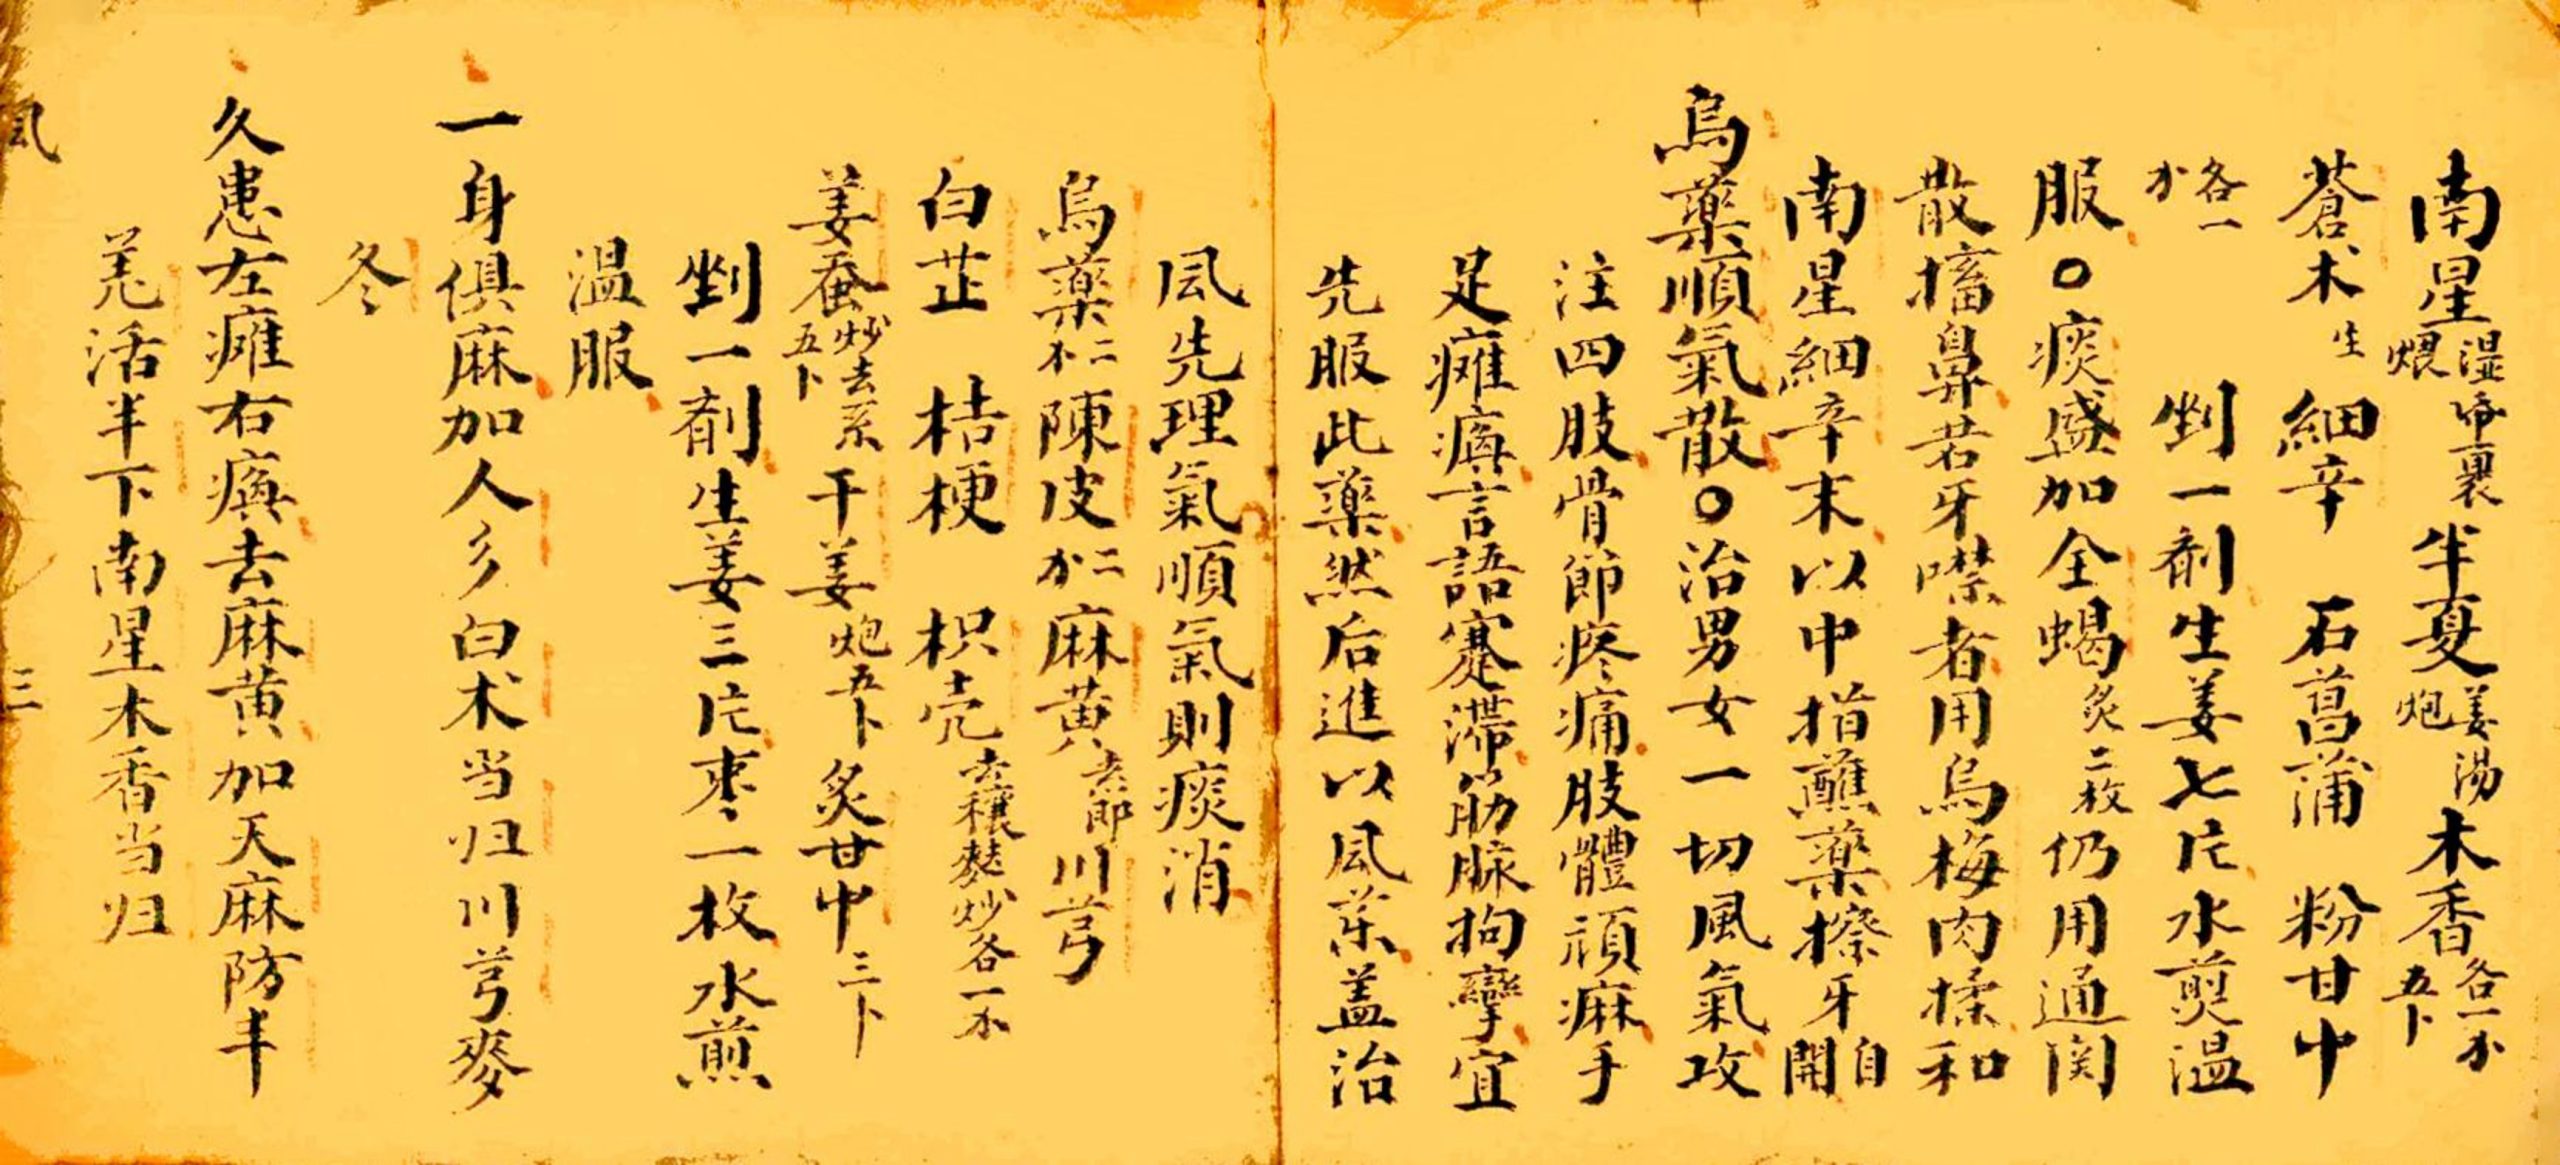 南星湿帋裹煨半夏姜湯炮木香各一小五卜
蒼木生細辛石菖蒲粉甘中
各一小剉一剤生姜七片水煎温
服〇痰盛加全蝎炙二枚仍用通関
散搐鼻若牙噤者用烏梅肉揉和
南星細辛末以中指蘸藥擦牙自開
烏藥順氣散〇治男女一切風氣攻
注四肢骨節疼痛肢體頑麻手
足瘫痪言語寋滞筋脉拘攣宜
先服此藥然后進以風茱盖治
风先理氣順氣則痰消
烏藥二小陳皮二小麻黄去節川芎
白芷桔梗枳壳去穰麸炒各一小
姜蚕炒去系五卜干姜炮五卜炙甘中三卜
剉一剤生姜三片枣一枚水煎
温服
一身俱麻加人乡白术当归川芎麥
冬
久患左瘫右痪去麻黄加天麻防丰
羌活半下南星木香当归
風 三